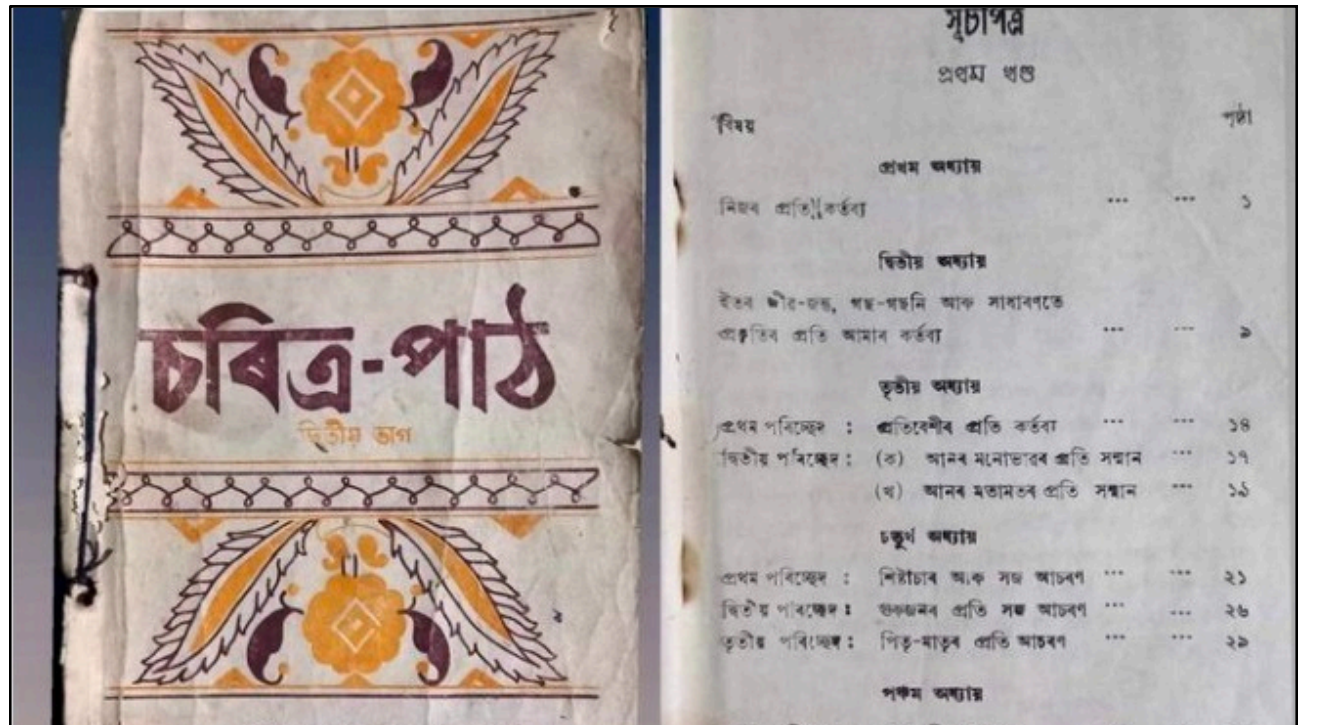 চৰিত্ৰ-পাঠ
দ্বিতীয় ভাগ
সূচীপত্ৰ
প্ৰথম খণ্ড
বিষয় পৃষ্ঠা
প্ৰথম অধ্যায়
নিজৰ প্ৰতি কৰ্তব্য ... ... ১
দ্বিতীয় অধ্যায়
ইতৰ জীৱ-জন্তু, গছ-গছনি আৰু সাধাৰণতে
প্ৰকৃতিৰ প্ৰতি আমাৰ কৰ্তব্য ... ... ৯
তৃতীয় অধ্যায়
প্ৰথম পৰিচ্ছেদ : প্ৰতিবেশীৰ প্ৰতি কৰ্তব্য ... ... ১৪
দ্বিতীয় পৰিচ্ছেদ : (ক) আনৰ মনোভাৱৰ প্ৰতি সন্মান ... ১৭
(খ) আনৰ মতামতৰ প্ৰতি সন্মান ... ১৯
চতুৰ্থ অধ্যায়
প্ৰথম পৰিচ্ছেদ : শিষ্টাচাৰ আৰু সজ আচৰণ ... ... ২১
দ্বিতীয় পৰিচ্ছেদ : গুৰুজনৰ প্ৰতি সজ আচৰণ ... ... ২৬
তৃতীয় পৰিচ্ছেদ : পিতৃ-মাতৃৰ প্ৰতি আচৰণ ... ... ২৯
পঞ্চম অধ্যায়